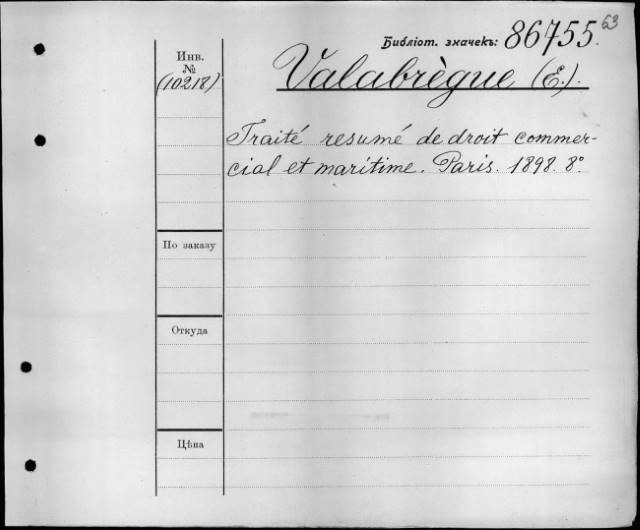 63
Библіот. значекъ: 86755.
Инв.
№
(10218)
Valabrègue (E.).
Traité resumé de droit commer-
cial et maritime. Paris. 1898. 8°.
По заказу
Откуда
Цѣна